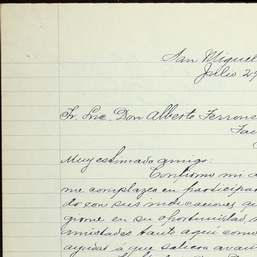 San Miguel
Julio 29
Sr. Lic. Don Alberto
Muy estimado amigo:
Confirmo mi
me complazco en participar
do con sus indicaciones
gione en su oportunidad
mistades tanto aqui como
ayudar á que saliera